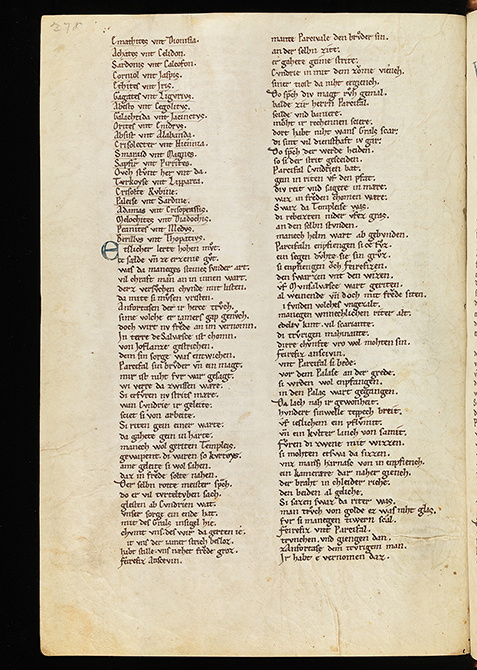 278
Emathites vnt Dionisia.
Achates vnt Celidon.
Sardonis vnt Calcofon.
Corniol vnt Jaspis.
Echites vnt Jris.
Gagates vnt Ligurius.
Abesto vnt Cegolitus.
Galactrida vnt Jacinctus.
Orites vnt Enidrus.
Absist vnt Alabanda.
Crisolecter vnt Hiennia.
Smarad vnt Magnes.
Saphir vnt Pirrites.
Ovch stvnt her vnt da.
Turkoyse vnt Lipparea.
Crisolte Rvbine.
Paleise vnt Sardine.
Adamas vnt Crisoprassis.
Melochites vnt Diadochis.
Peanites vnt Medus.
Berillus vnt Thopazius.
Etslicher lerte hohen mvt.
ze sælde vn ze erzenie gvt.
was da maneges steines svnder art.
vil chraft man an in innen wart.
derz versvchen chvnde mit listen.
da mite si mvsen vristen.
Anfortasen der ir herze trvch.
sime volche er iamers gap genvch.
doch wirt nv frœde an im vernomn.
In terre de Salvatsce ist chomn.
von Joflanze gestrichen.
dem sin sorge was entwichen.
Parcefal sin brvder vn ein magt.
mir ist niht fvr war gesagt.
wi verre da zwissen wære.
Si erfvren nv strits mære.
wan Cvndrie ir geleite.
sciet si von arbeite.
Si riten gein einer warte.
da gahete gein in harte.
manech wol geriten Templeis.
gewapent di waren so kvrtoys.
ame geleite si wol sahen.
daz in frœde solte nahen.
Der selben rotte meister sprch.
do er vil tvrteltvben sach.
glesten ab Cvndrien wat.
vnser sorge ein ende hat.
mit des Grals insigel hie.
chvmt vns des wir da gerten ie.
sit vns der iamer strich besloz.
habt stille vns næhet frœde groz.
Feirefiz Anscevin.
mante Parcivale den brvder sin.
an der selbn zite.
er gahete geime strite.
Cvndrie in mit dem zovme viench.
siner tiost da niht ergiench.
Do sprch div magt rvh gemal.
balde zir herrn Parcifal.
scilde vnd baniere.
moht ir rechennen sciere.
dort habt niht wans Grals scar.
di sint vil diensthaft iv gar.
Do sprch der werde heiden.
so si der strit gesceiden.
Parcifal Cvndrien bat.
gein in riten vf den pfat.
div reit vnd sagete in mære.
waz in frœden chomen wære.
Swaz da Templeise was.
di rebeizten nider vfez gras.
an den selbn stvnden.
manech helm wart ab gebvnden.
Parcifaln enpfiengen si ce fvz.
ein segen dvhte si sin grvz.
si enpfiengen och Feirefizen.
den swarzen vnt den wizen.
vf Mvnsalvatsce wart geriten.
al weinende vn doch mit frœde siten.
si fvnden volches vngezalt.
manegen winnechlichen riter alt.
edelev kint vil scariante.
di trvrigen mahinante.
dirre chvnfte vro wol mohten sin.
Feirefiz anscivin.
vnt Parcifal si bede.
vor dem Palase an der grede.
si wrden wol enpfangen.
in den Palas wart gegangen.
Da lach nah ir gewonheit.
hvndert sinwelle teppech breit.
vf ieslichem ein pflvmit.
vn ein kvlter lanch von samit.
Fvren di zwene mit wizzen.
si mohten etswa da sizzen.
vnz manß harnasc von in enpfiench.
ein kamerære dar naher giench.
der braht in chleider riche.
den beiden al geliche.
Si sazen swaz da riter was.
man trvch von golde ez was niht glas.
fvr si manegen tiwern scal.
Feirefiz vnt Parcifal.
trvnchen vnd giengen dan.
zAnfortase dem trvrigen man.
Ir habt e vernomen daz.